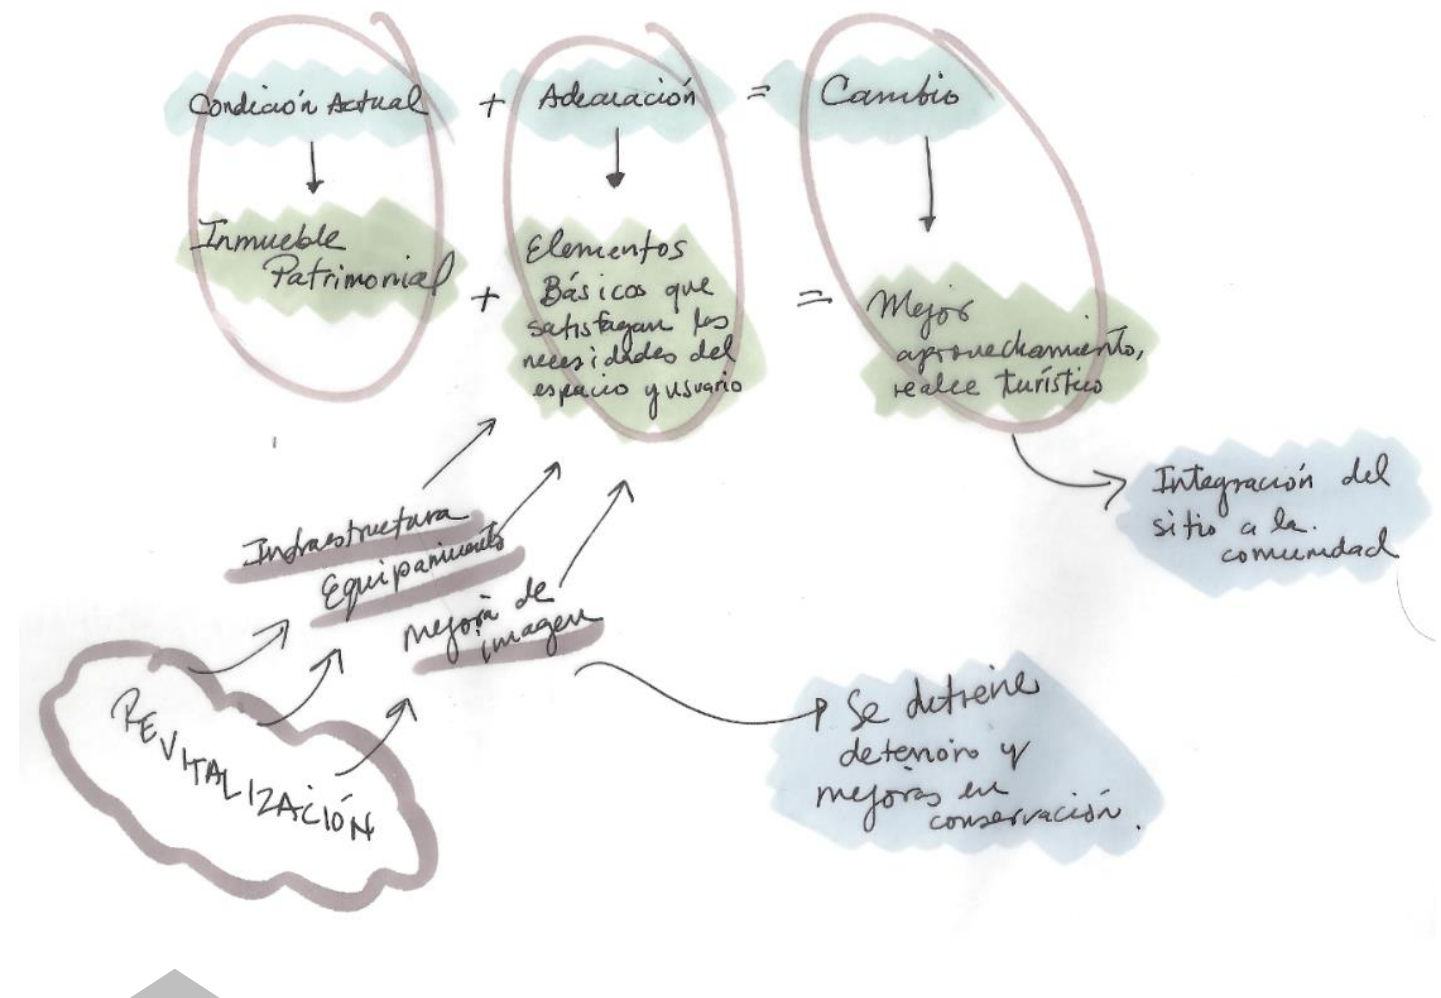 Condición Actual + Adecuación = Cambio
Inmueble
Patrimonial
+
Elementos
Básicos que
satisfagan las
necesidades del
espacio y usuario
=
Mejor
aprovechamiento,
realce turístico
Integración del
sitio a la
comunidad
Infraestructura
Equipamiento
Mejora de
imagen
REVITALIZACIÓN
Se detiene
deterioro y
mejoras en
conservación.